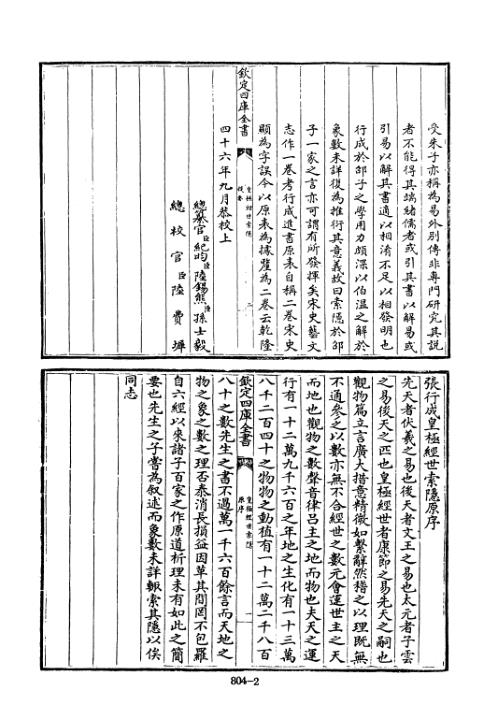 受朱子亦稱為易外別傳非專門研究其説
者不能得其端緒儒者或引其書以解易或
引易以解其書適以相淆不足以相發明也
行成於邵子之學用力頗深以伯温之解於
象數未詳復為推衍其意義故曰索隠於邵
子一家之言亦可謂有所發揮矣宋史藝文
志作一卷考行成進書原表自稱二卷宋史
顯為字誤今以原表為據釐為二卷云乾隆
欽定四庫全書
皇極經世索隠
提要
二
四十六年九月恭校上
總纂官臣紀昀臣陸錫熊臣孫士毅
總校官臣陸費墀
張行成皇極經世索隠原序
先天者伏羲之易也後天者文王之易也太元者子雲
之易後天之匹也皇極經世者康節之易先天之嗣也
觀物篇立言廣大措意精微如繫辭然稽之以理既無
不通參之以數亦無不合經世之數元會運世主之天
而地也觀物之數聲音律吕主之地而物也夫天之運
行有一十二萬九千六百之年地之生化有一十三萬
八千二百四十之物物之動植有一十二萬二千八百
欽定四庫全書
皇極經世索隠
原序
一
八十之數先生之書不過萬一千六百餘言而天地之
物之象之數之理否泰消長損益因革其間罔不包羅
自六經以來諸子百家之作原道析理未有如此之簡
要也先生之子嘗為叙述而象數未詳輙索其隠以俟
同志
804-2